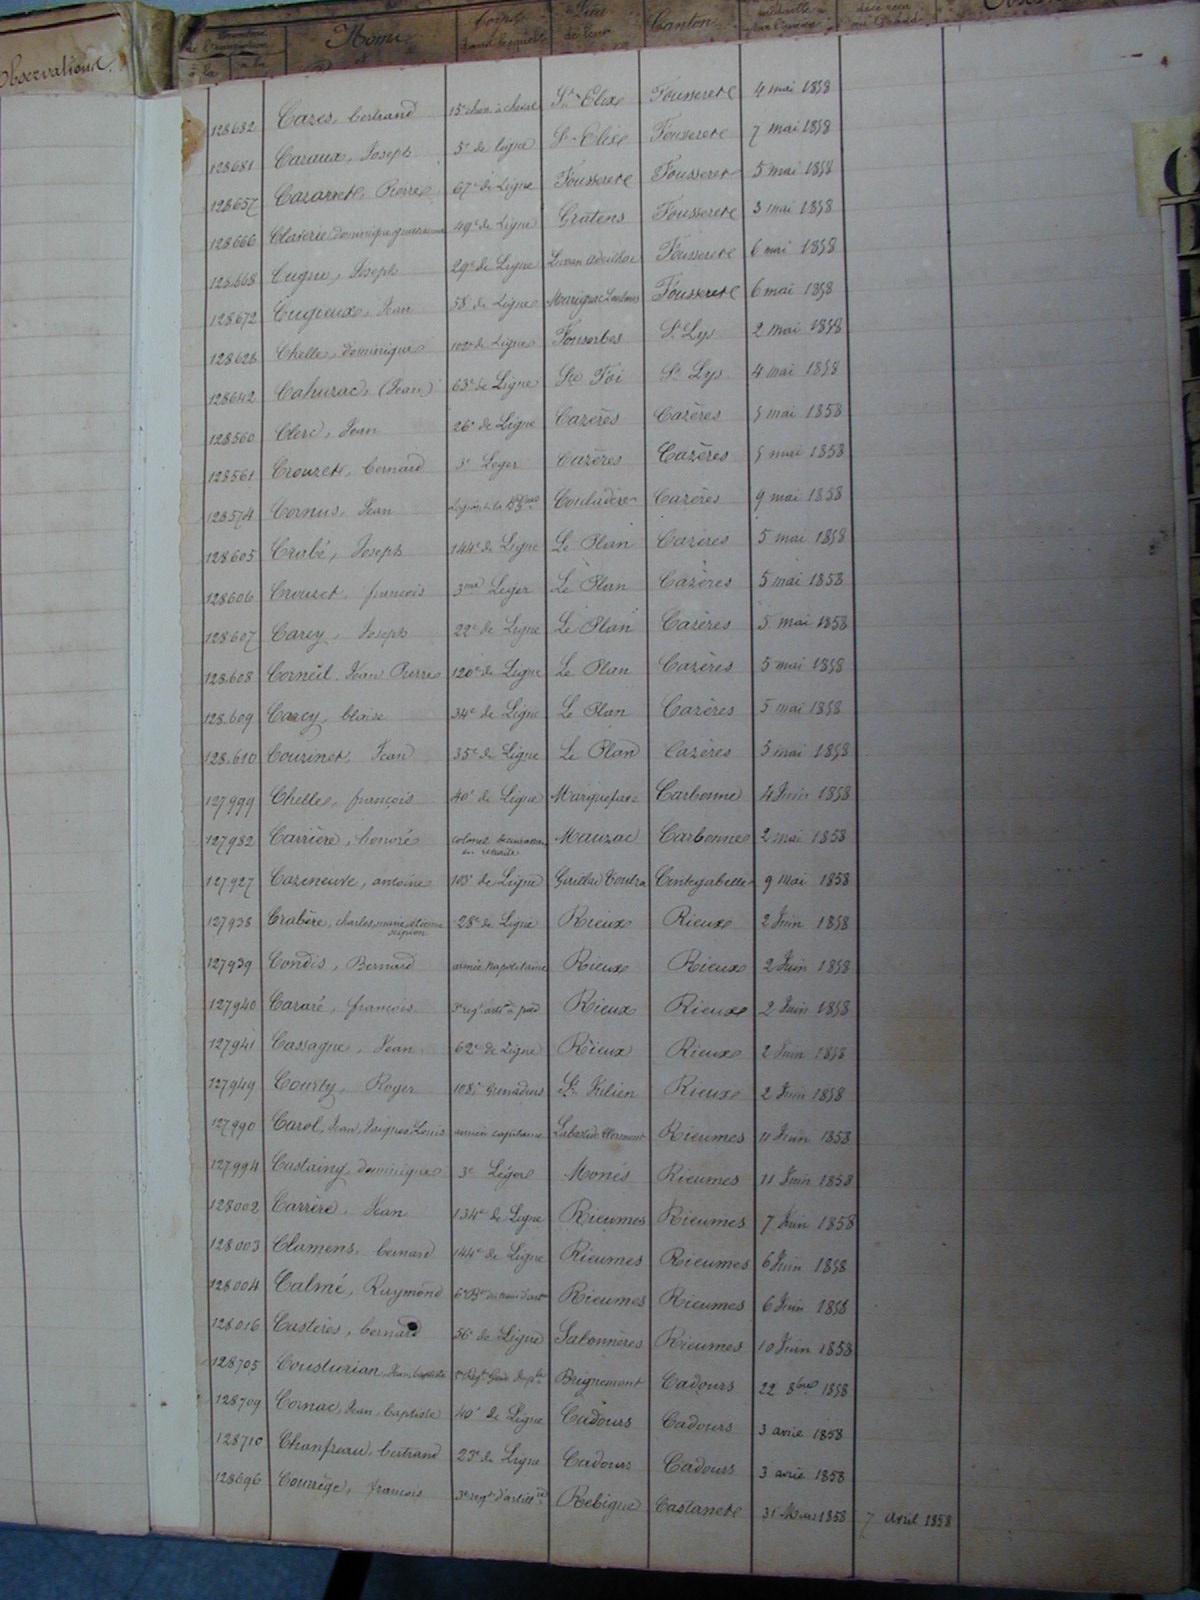 Observations.
Noms
Corps
Canton
à la
128632 Cazes, bertrand 15e chas. à cheval St Elix Fousseret 4 mai 1858
128681 Cazaux, Joseph 5e de ligne St Elix Fousseret 7 mai 1858
128657 Cazarret, Pierre 67e de Ligne Fousseret Fousseret 5 mai 1858
128666 Claverie, dominique 49e de Ligne Gratens Fousseret 3 mai 1858
128668 Cugne, Joseph 29e de Ligne Lussan adeilhac Fousseret 6 mai 1858
128672 Cugieux, Jean 58 de Ligne Marignac Fousseret 6 mai 1858
128626 Chelle, dominique 102e de Ligne Fonsorbes St Lys 2 mai 1858
128642 Cahuzac, (Jean) 63e de Ligne Ste Foi St Lys 4 mai 1858
128560 Clerc, Jean 26e de Ligne Cazères Cazères 5 mai 1858
128561 Crouzet, bernard 3e Leger Cazères Cazères 5 mai 1858
128574 Cornus, Jean Couladère Cazères 9 mai 1858
128605 Crabé, Joseph 144e de Ligne Le Plan Cazères 5 mai 1858
128606 Crouzet, françois 3me Leger Le Plan Cazères 5 mai 1858
128607 Carcy, Joseph 22e de Ligne Le Plan Cazères 5 mai 1858
128.608 Corneil, Jean Pierre 120e de Ligne Le Plan Cazères 5 mai 1858
128.609 Carcy, blaise 34e de Ligne Le Plan Cazères 5 mai 1858
128.610 Couzinet, Jean 35e de Ligne Le Plan Cazères 5 mai 1858
127999 Chelle, françois 40e de Ligne Marquefave Carbonne 4 Juin 1858
127982 Carrière, honoré colonel en retraite Mauzac Carbonne 2 mai 1858
127927 Cazeneuve, antoine 103e de Ligne Gaillac Toulza Cintegabelle 9 mai 1858
127938 Crabère, charles, marie, etienne scipion 28e de Ligne Rieux Rieux 2 Juin 1858
127939 Condis, Bernard armée Napolitaine Rieux Rieux 2 Juin 1858
127940 Cazaré, françois 3e regt artie à pied Rieux Rieux 2 Juin 1858
127941 Cassagne, Jean 62e de Ligne Rieux Rieux 2 Juin 1858
127949 Courty, Roger 108e Grenadiers St Julien Rieux 2 Juin 1858
127990 Carol, Jean, Louis ancien capitaine Labastide Clermont Rieumes 11 Juin 1858
127994 Castaing, dominique 3e Léger Monés Rieumes 11 Juin 1858
128002 Carrère, Jean 134e de Ligne Rieumes Rieumes 7 Juin 1858
128003 Clamens, bernard 144e de Ligne Rieumes Rieumes 6 Juin 1858
128004 Calmé, Raymond Rieumes Rieumes 6 Juin 1858
128016 Castères, bernard 56e de Ligne Sabonnères Rieumes 10 Juin 1858
128705 Cousturian, Jean, baptiste Brignemont Cadours 22 8bre 1858
128709 Cornac, Jean, baptiste 40e de Ligne Cadours Cadours 3 avril 1858
128710 Chanfreau, bertrand 23e de Ligne Cadours Cadours 3 avril 1858
128696 Courrège, françois 3e regt d'artillie Rebigue Castanet 31 Mars 1858 7 Avril 1858